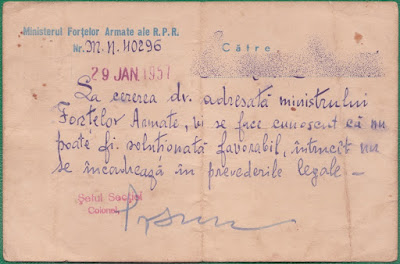 Ministerul Forțelor Armate ale R.P.R.
Nr. M.N. 40296
Către
29 JAN. 1957
La cererea dv. adresată ministrului
Forțelor Armate, vi se face cunoscut că nu
poate fi soluționată favorabil, întrucît nu
se încadrează în prevederile legale –
Șeful Secției
Colonel,